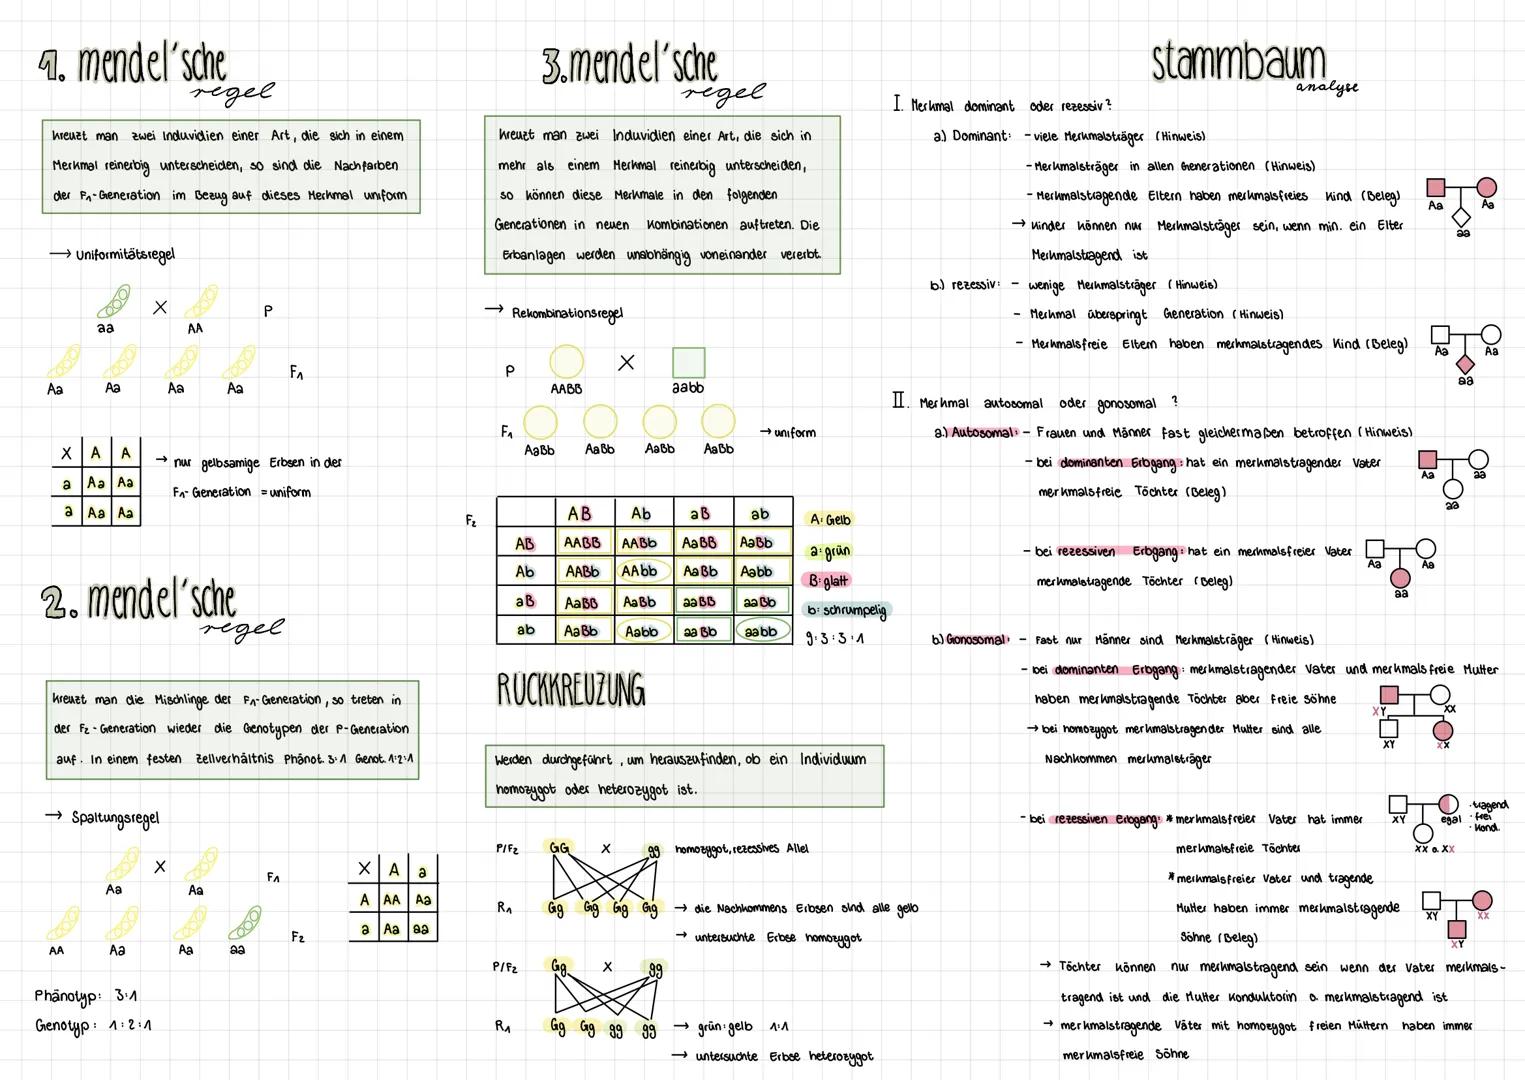 1. mendel'sche
regel
kreuzt man zwei Induvidien einer Art, die sich in einem
Merkmal reinerbig unterscheiden, so sind die Nachfarben
der F1-Generation im Bezug auf dieses Merkmal uniform
→ Uniformitätsregel
X P
aa AA
F1
Aa Aa Aa Aa
X A A
a Aa Aa
a Aa Aa
→ nur gelbsamige Erbsen in der
F1-Generation = uniform
2. mendel'sche
regel
kreuzt man die Mischlinge der F1-Generation, so treten in
der F2-Generation wieder die Genotypen der P-Generation
auf. In einem festen Zellverhältnis Phänot. 3:1 Genot. 1:2:1
→ Spaltungsregel
X F1
Aa Aa
F2
AA Aa Aa aa
X A a
A AA Aa
a Aa aa
Phänotyp: 3:1
Genotyp: 1:2:1
3. mendel'sche
regel
kreuzt man zwei Induvidien einer Art, die sich in
mehr als einem Merkmal reinerbig unterscheiden,
so können diese Merkmale in den folgenden
Generationen in neuen Kombinationen auftreten. Die
Erbanlagen werden unabhängig voneinander vererbt.
→ Rekombinationsregel
P X
AABB aabb
F1 → uniform
AaBb AaBb AaBb AaBb
F2
AB Ab aB ab
AB AABB AABb AaBB AaBb
Ab AABb AAbb AaBb Aabb
aB AaBB AaBb aaBB aaBb
ab AaBb Aabb aaBb aabb
A: Gelb
a: grün
B: glatt
b: schrumpelig
9:3:3:1
RÜCKKREUZUNG
Werden durchgeführt, um herauszufinden, ob ein Individuum
homozygot oder heterozygot ist.
P/F2 GG x gg homozygot, rezessives Allel
R1 Gg Gg Gg Gg → die Nachkommens Erbsen sind alle gelb
→ untersuchte Erbse homozygot
P/F2 Gg x gg
R1 Gg Gg gg gg → grün:gelb 1:1
→ untersuchte Erbse heterozygot
stammbaum
analyse
I. Merkmal dominant oder rezessiv?
a.) Dominant: - viele Merkmalsträger (Hinweis)
- Merkmalsträger in allen Generationen (Hinweis)
- Merkmalstragende Eltern haben merkmalsfreies Kind (Beleg)
Aa Aa
aa
→ Kinder können nur Merkmalsträger sein, wenn min. ein Elter
Merkmalstragend ist
b.) rezessiv: - wenige Merkmalsträger (Hinweis)
- Merkmal überspringt Generation (Hinweis)
- Merkmalsfreie Eltern haben merkmalstragendes Kind (Beleg)
Aa Aa
aa
II. Merkmal autosomal oder gonosomal ?
a.) Autosomal: - Frauen und Männer fast gleichermaßen betroffen (Hinweis)
- bei dominanten Erbgang: hat ein merkmalstragender Vater
merkmalsfreie Töchter (Beleg)
Aa aa
aa
- bei rezessiven Erbgang: hat ein merkmalsfreier Vater
merkmalstragende Töchter (Beleg)
Aa Aa
aa
b.) Gonosomal: - Fast nur Männer sind Merkmalsträger (Hinweis)
- bei dominanten Erbgang: merkmalstragender Vater und merkmalsfreie Mutter
haben merkmalstragende Töchter aber freie Söhne
XY XX
XY XX
→ bei homozygot merkmalstragender Mutter sind alle
Nachkommen merkmalsträger
- bei rezessiven Erbgang: * merkmalsfreier Vater hat immer
merkmalsfreie Töchter
XY egal · tragend
· frei
· Kond.
XX o. XX
* merkmalsfreier Vater und tragende
Mutter haben immer merkmalstragende
Söhne (Beleg)
XY XX
XY
→ Töchter können nur merkmalstragend sein wenn der Vater merkmals-
tragend ist und die Mutter Konduktorin o. merkmalstragend ist
→ merkmalstragende Väter mit homozygot freien Müttern haben immer
merkmalsfreie Söhne